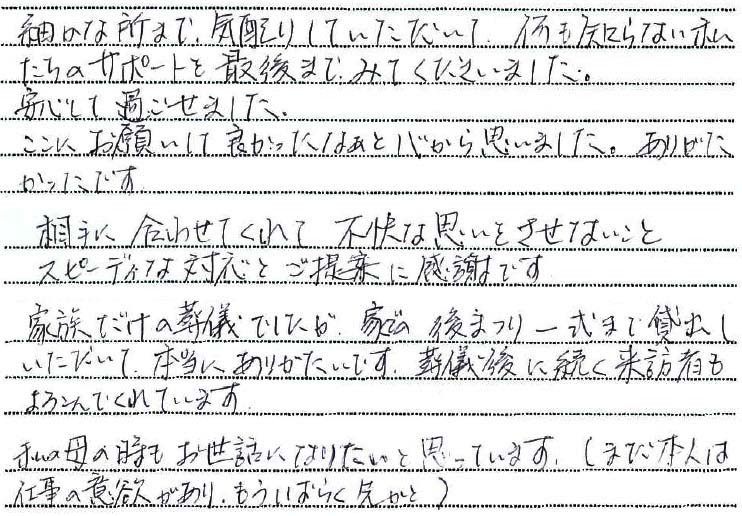 細かな所まで、気配りしていただいて、何も知らない私
たちのサポートを最後まで、みてくださいました。
安心して過ごせました。
ここに、お願いして良かったなあと心から思いました。ありがた
かったです。
相手に合わせてくれて不快な思いをさせないこと
スピーディな対応とご提案に感謝です
家族だけの葬儀でしたが、家での後まつり一式まで貸出し
いただいて、本当にありがたいです。葬儀後に続く来訪者も
よろこんでくれています。
私の母の時もお世話になりたいと思っています。(まだ本人は
仕事の意欲があり、もうしばらく先かと)